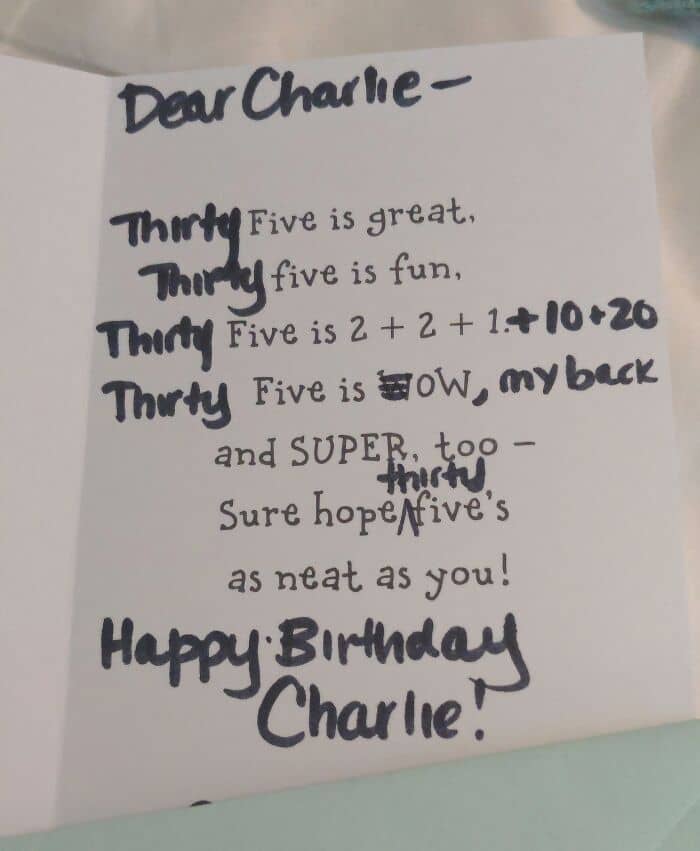 Dear Charlie –
Thirty Five is great,
Thirty five is fun,
Thirty Five is 2 + 2 + 1.+10+20
Thirty Five is OW, my back
and SUPER, too –
thirty
Sure hope five's
as neat as you!
Happy Birthday
Charlie!